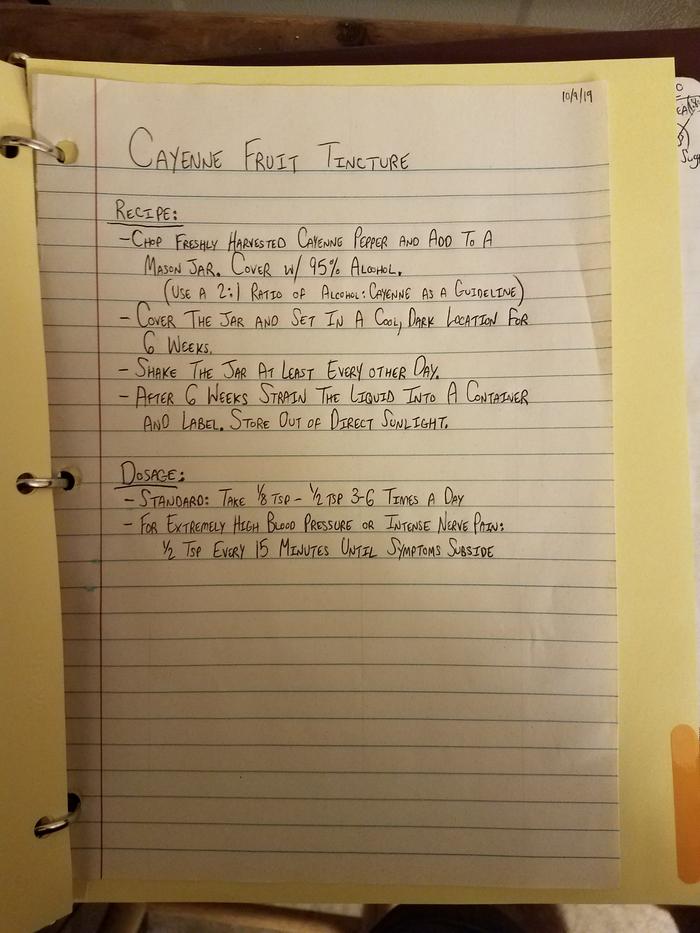 10/9/19
CAYENNE FRUIT TINCTURE
RECIPE:
- CHOP FRESHLY HARVESTED CAYENNE PEPPER AND ADD TO A
MASON JAR. COVER W/ 95% ALCOHOL.
(USE A 2:1 RATIO OF ALCOHOL:CAYENNE AS A GUIDELINE)
- COVER THE JAR AND SET IN A COOL, DARK LOCATION FOR
6 WEEKS.
- SHAKE THE JAR AT LEAST EVERY OTHER DAY.
- AFTER 6 WEEKS STRAIN THE LIQUID INTO A CONTAINER
AND LABEL. STORE OUT OF DIRECT SUNLIGHT.
DOSAGE:
- STANDARD: TAKE 1/8 TSP - 1/2 TSP 3-6 TIMES A DAY
- FOR EXTREMELY HIGH BLOOD PRESSURE OR INTENSE NERVE PAIN:
1/2 TSP EVERY 15 MINUTES UNTIL SYMPTOMS SUBSIDE